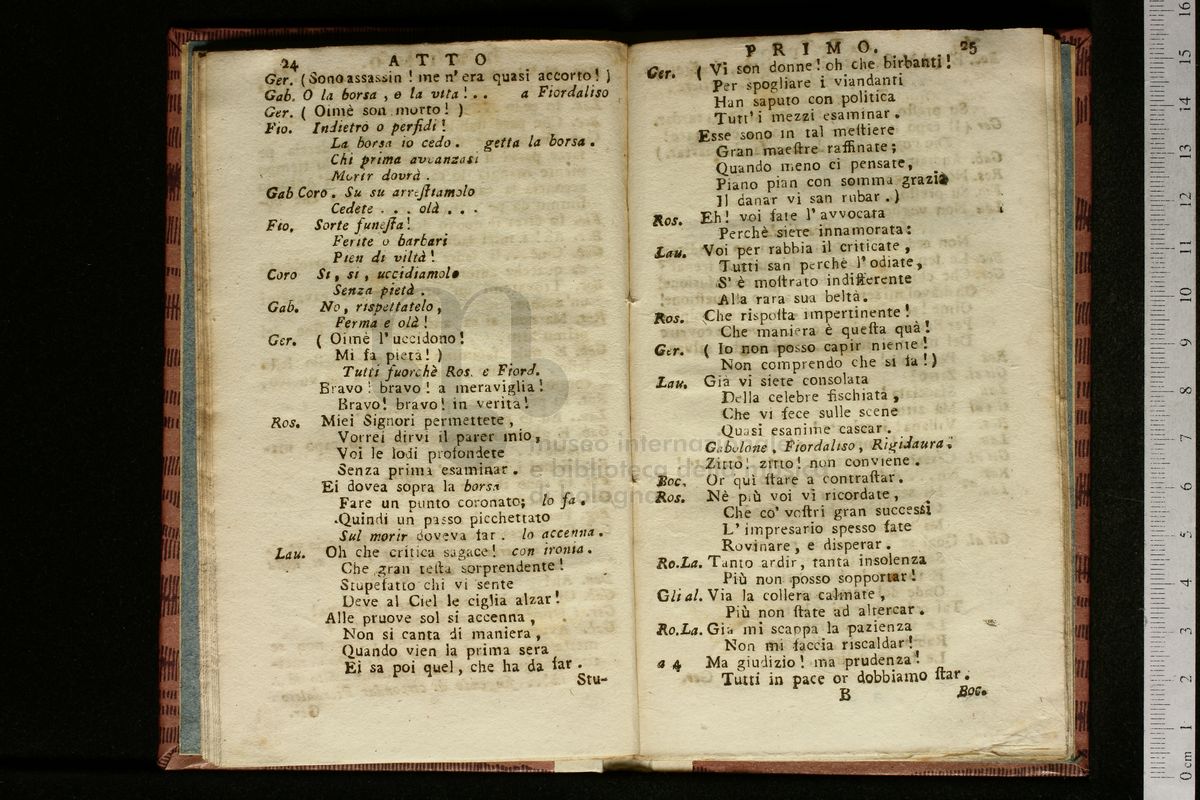 24 ATTO
Ger. ( Sono assassin ! me n'era quasi accorto ! )
Gab. O la borsa , o la vita ! . . a Fiordaliso
Ger. ( Oimè son morto ! )
Fio. Indietro o perfidi !
La borsa io cedo . getta la borsa .
Chi prima avvanzasi
Morir dovrà .
Gab Coro . Su su arreſtiamolo
Cedete . . . olà . . .
Fio. Sorte funeſta !
Ferite o barbari
Pien di viltà !
Coro Si , si , uccidiamolo
Senza pietà .
Gab. No , rispettatelo ,
Ferma e olà !
Ger. ( Oimè l'uccidono !
Mi fa pietà ! )
Tutti fuorchè Ros. e Fiord.
Bravo ! bravo ! a meraviglia !
Bravo ! bravo ! in verità !
Ros. Miei Signori permettete ,
Vorrei dirvi il parer mio ,
Voi le lodi profondete
Senza prima esaminar .
Ei dovea sopra la borsa
Fare un punto coronato ; lo fa .
Quindi un passo picchettato
Sul morir doveva far . lo accenna .
Lau. Oh che critica sagace ! con ironia .
Che gran teſta sorprendente !
Stupefatto chi vi sente
Deve al Ciel le ciglia alzar !
Alle pruove sol si accenna ,
Non si canta di maniera ,
Quando vien la prima sera
Ei sa poi quel , che ha da far .
Stu-
PRIMO. 25
Ger. ( Vi son donne ! oh che birbanti !
Per spogliare i viandanti
Han saputo con politica
Tutt'i mezzi esaminar .
Esse sono in tal meſtiere
Gran maeſtre raffinate ;
Quando meno ci pensate ,
Piano pian con somma grazia
Il danar vi san rubar . )
Ros. Eh ! voi fate l'avvocata
Perchè siete innamorata :
Lau. Voi per rabbia il criticate ,
Tutti san perchè l'odiate ,
S'è moſtrato indifferente
Alla rara sua beltà .
Ros. Che rispoſta impertinente !
Che maniera è queſta quà !
Ger. ( Io non posso capir niente !
Non comprendo che si fa ! )
Lau. Già vi siete consolata
Della celebre fischiata ,
Che vi fece sulle scene
Quasi esanime cascar .
Gabolone , Fiordaliso , Rigidaura .
Zitto ! zitto ! non conviene .
Boc. Or quì ſtare a contraſtar .
Ros. Nè più voi vi ricordate ,
Che co' voſtri gran successi
L' impresario spesso fate
Rovinare , e disperar .
Ro.La. Tanto ardir , tanta insolenza
Più non posso sopportar !
Gli al. Via la collera calmate ,
Più non ſtate ad altercar .
Ro.La. Già mi scappa la pazienza
Non mi faccia riscaldar !
a 4 Ma giudizio ! ma prudenza !
Tutti in pace or dobbiamo ſtar .
B Boc.
museo internazionale
e biblioteca della musica
di bologna
0 cm 1 2 3 4 5 6 7 8 9 10 11 12 13 14 15 16